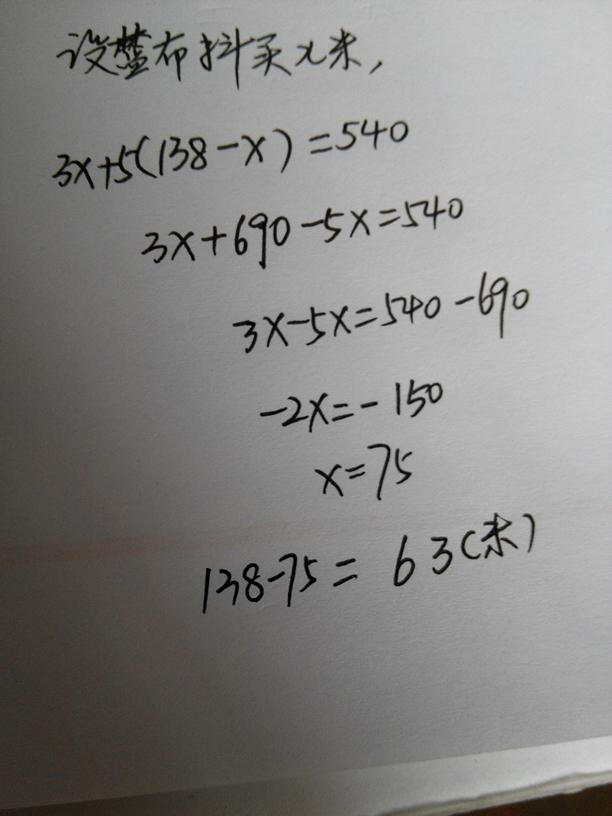 设蓝布料买x米,
3x+5(138-x)=540
3x+690-5x=540
3x-5x=540-690
-2x=-150
x=75
138-75=63(米)